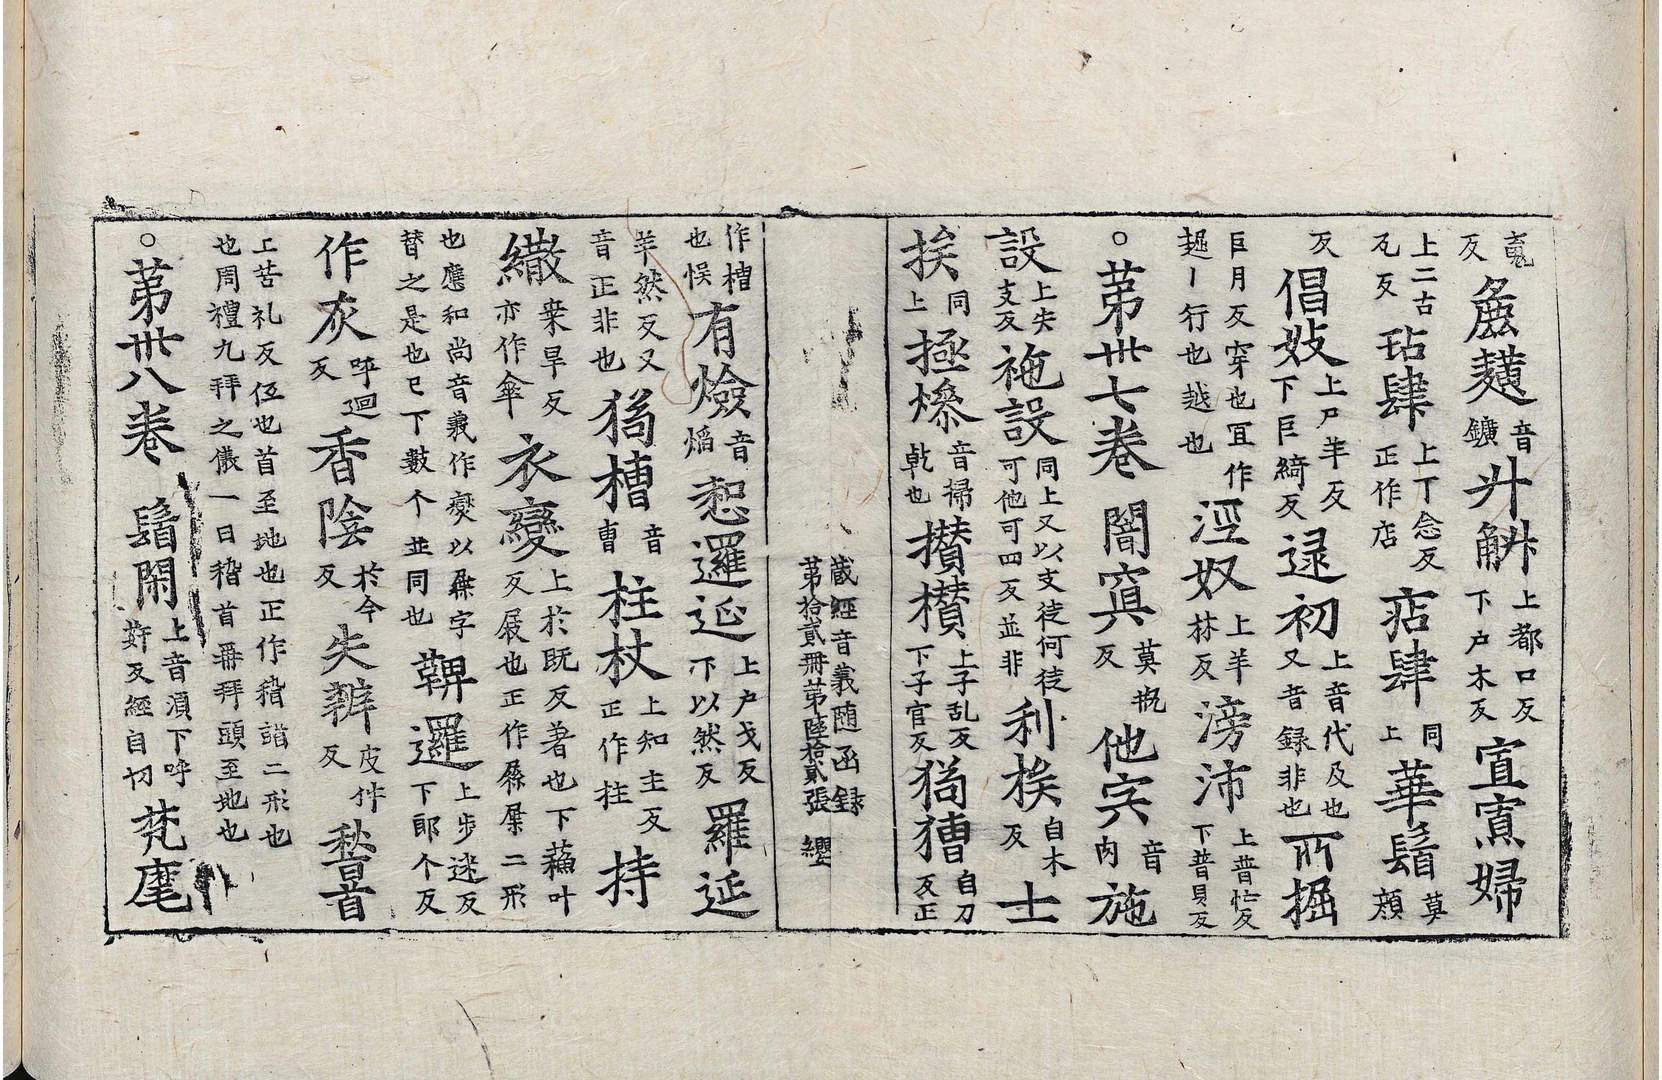 㲉反麁䵃音鑛升斛上都口反下户木反宜寡婦
上二古瓦反玷肆上丁念反正作店㾿肆同上華鬘莫顔
反倡妓上尸羊反下巨綺反逯初上音代及也又音録非也所掘
巨月反穿也冝作趉丨行也越也滛奴上羊林反滂沛上普忙反下普貝反
○苐卅七卷闇冥莫瓶反他宍音内施
設上失支反袘設同上又以支徒何徒可他可四反並非利挨自木反士
挨同上拯㷮音掃乹也攅欑上子乱反下子官反猗獞自刀反正
藏經音義随函録
苐拾貳冊苐陸拾貳張 纓
作槽也悮有燄音焰惒邏延上户戈反下以然反羅延
羊然反又音正非也猗槽音曹柱杖上知主反正作拄持
繖桒旱反亦作傘衣㜻上於既反著也下蘓叶反屐也正作屧屟二形
也應和尚音義作㜻以屧字替之是也已下數个並同也鞞邏上步迷反下郎个反
作灰呼迴反香陰於今反失辬皮件反𩠐首
上苦礼反伍也首至地也正作稽䭫二形也
也周禮九拜之儀一曰稽首冊拜頭至地也
○苐卅八卷鬚閑上音湏下呼奸反經自切梵麾